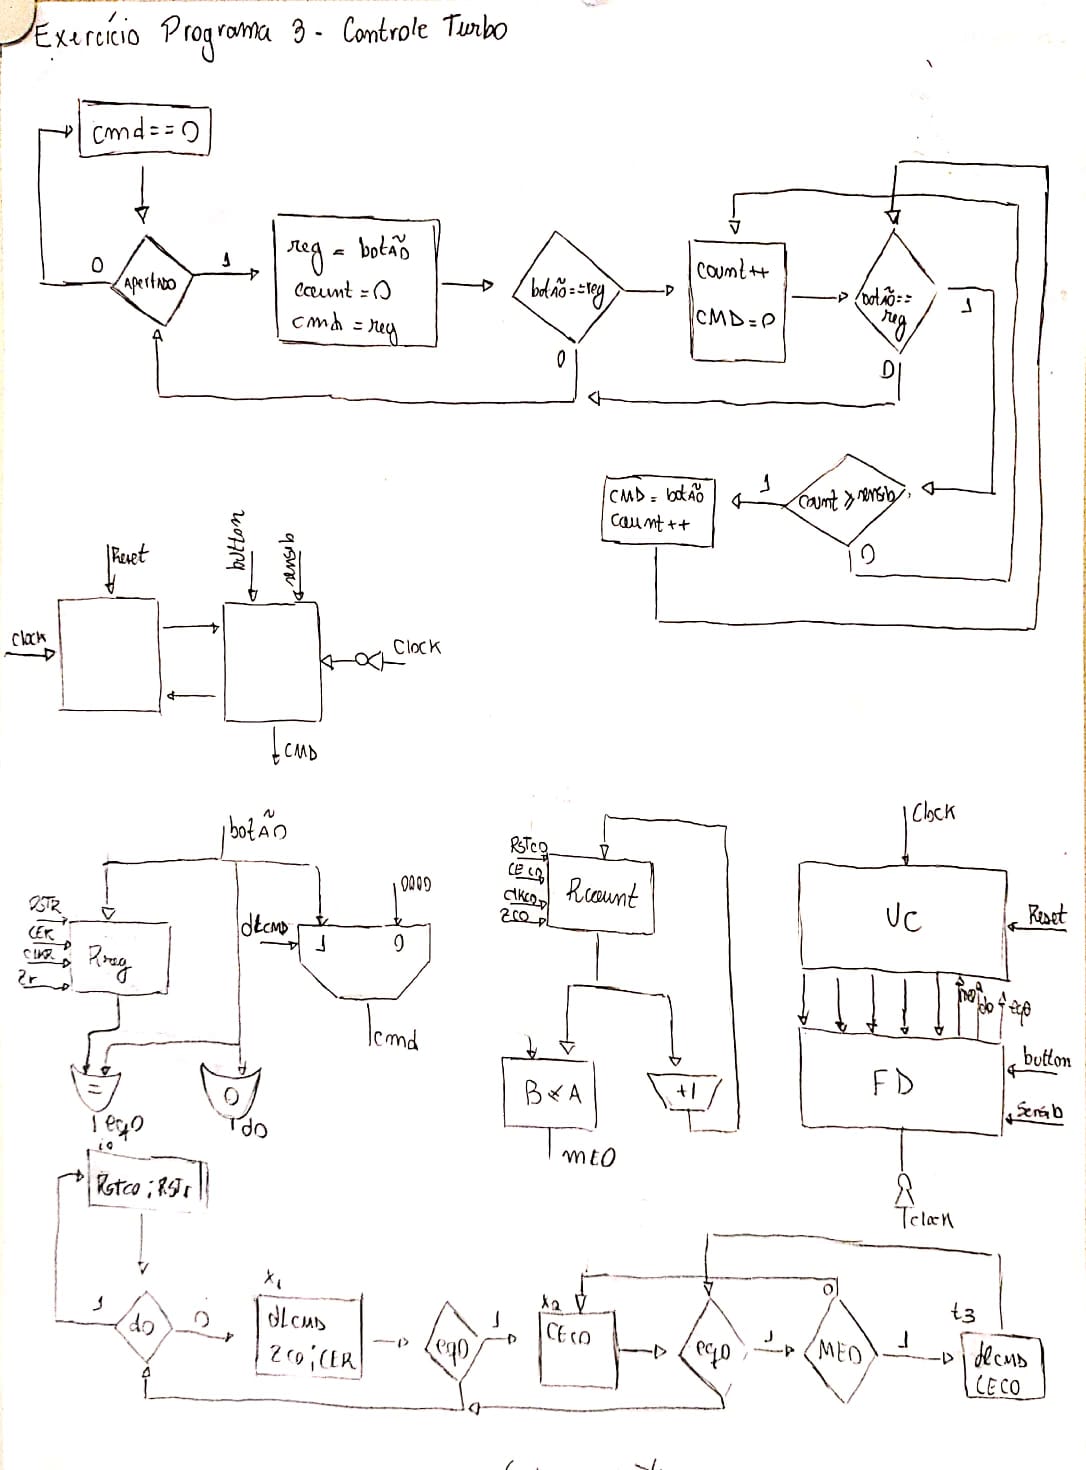 Exercício Programa 3 - Controle Turbo
cmd==0
0
Apertado
1
reg = botão
count = 0
cmd = reg
botão==reg
0
count++
CMD=0
botão==
reg
1
0
count ≥ sensib
1
0
CMD = botão
count++
Reset
button
sensib
clock
Clock
CMD
botão
RSTR
CER
ClkR
Zr
Rreg
dlcmd
0000
1
0
cmd
=
0
eq0
do
RSTco
CECO
ClKCO
ZCO
Rcount
B≤A
+1
MEO
Clock
UC
Reset
meo
do
eq0
FD
button
Sensib
clock
io
Rstco; RSTr
1
do
0
x1
dlcmd
zco; CER
eq0
1
x2
CECO
eq0
1
0
MEO
1
t3
dlcmd
CECO